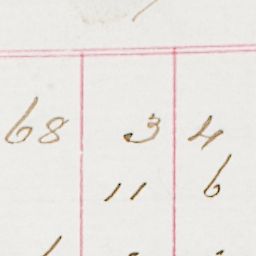 68 3 4
11 6